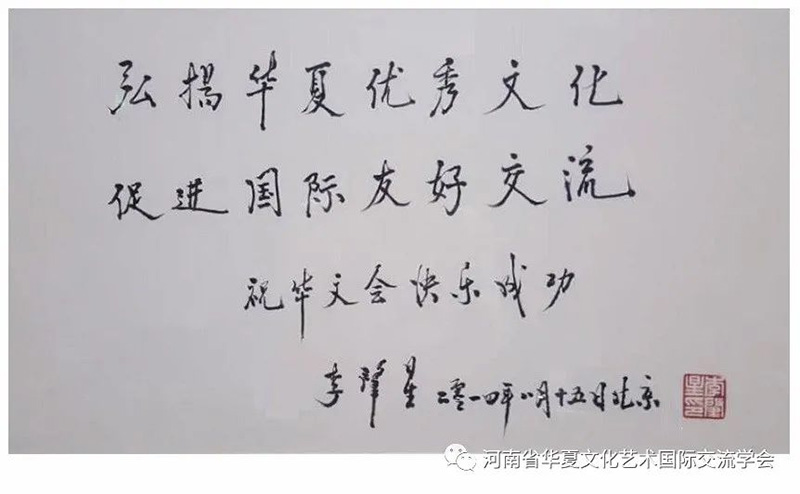 弘揚华夏优秀文化
促进国际友好交流
祝华文会快乐成功
李肇星 二零一四年八月十五日北京
李肇星印
河南省华夏文化艺术国际交流学会